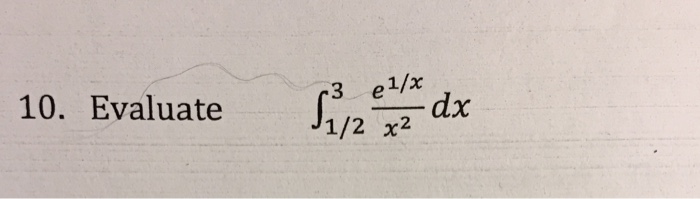 10. Evaluate ∫_{1/2}^{3} \frac{e^{1/x}}{x^2} dx